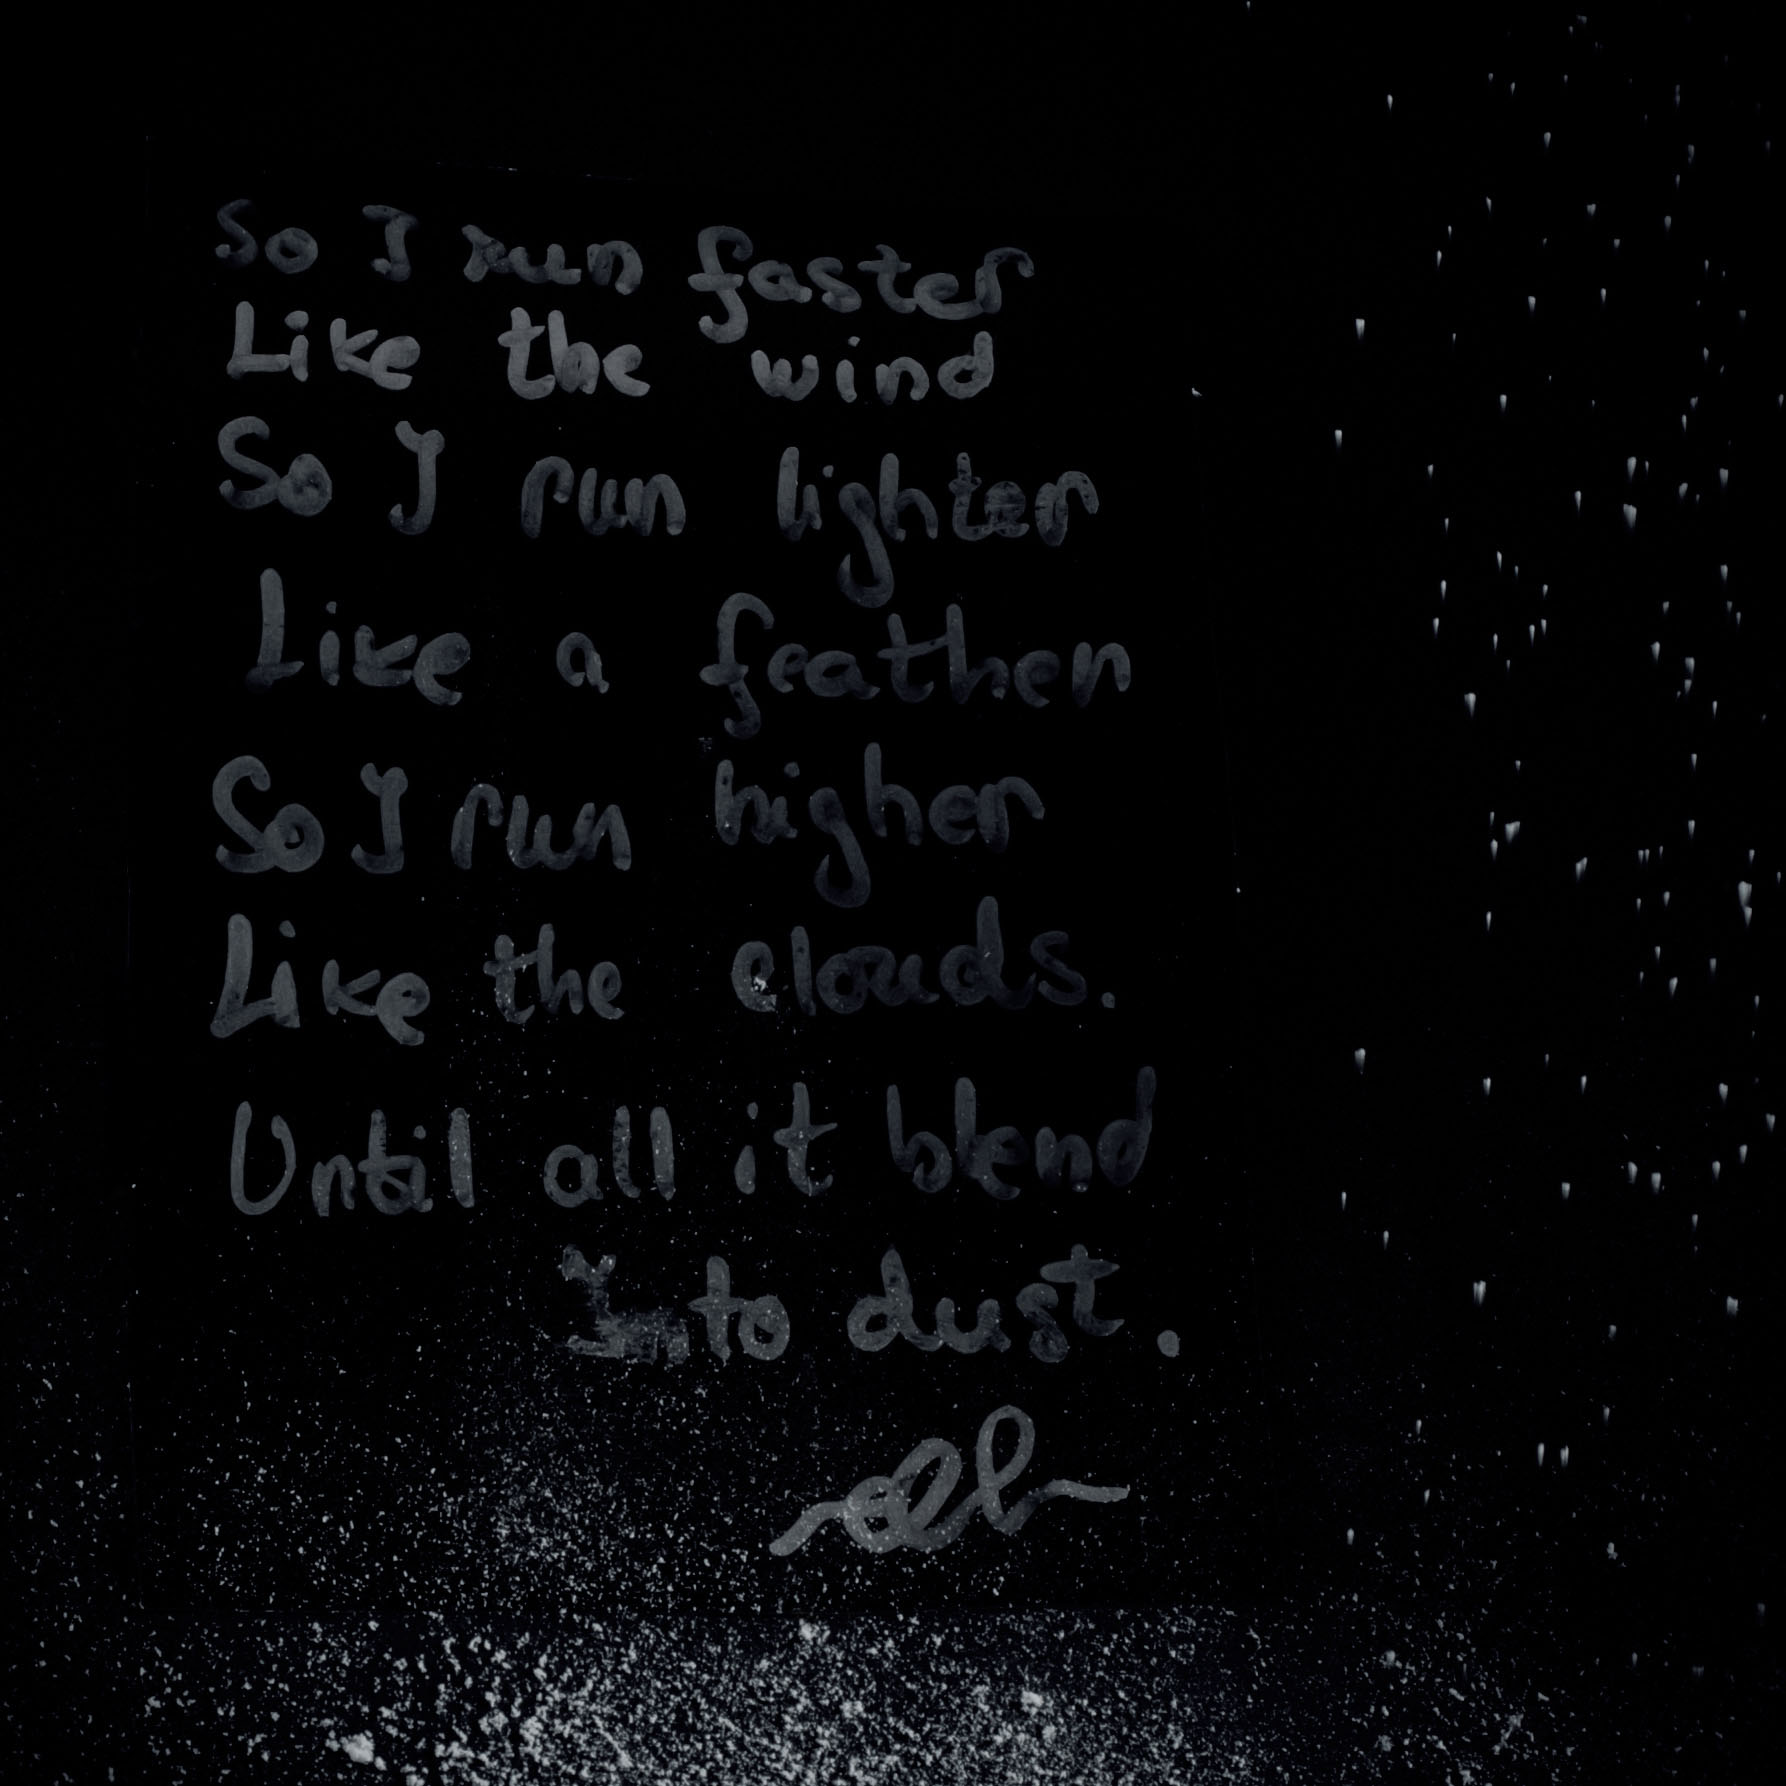 So I run faster
Like the wind
So I run lighter
Like a feather
So I run higher
Like the clouds.
Until all it blend
Into dust.